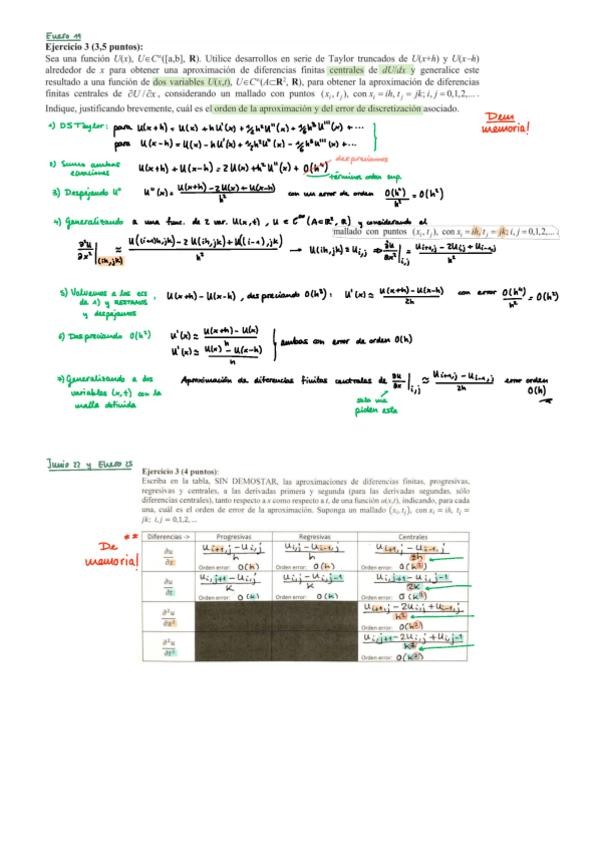 Enero 19
Ejercicio 3 (3,5 puntos):
Sea una función U(x), U∈Cⁿ([a,b], R). Utilice desarrollos en serie de Taylor truncados de U(x+h) y U(x-h)
alrededor de x para obtener una aproximación de diferencias finitas centrales de dU/dx y generalice este
resultado a una función de dos variables U(x,t), U∈Cⁿ(A⊂R², R), para obtener la aproximación de diferencias
finitas centrales de ∂U/∂x, considerando un mallado con puntos (xᵢ, tⱼ), con xᵢ = ih, tⱼ = jk; i, j = 0,1,2,... .
Indique, justificando brevemente, cuál es el orden de la aproximación y del error de discretización asociado.
Dem memoria!
1) DS Taylor: para u(x+h) = u(x) + h u'(x) + ½h²u''(x) + ⅙h³u'''(x) + ...
para u(x-h) = u(x) - h u'(x) + ½h²u''(x) - ⅙h³u'''(x) + ...
despreciamos
2) Sumo ambas ecuaciones u(x+h) + u(x-h) = 2u(x) + h²u''(x) + O(h⁴)
términos orden sup.
3) Despejando u'' u''(x) = u(x+h) - 2u(x) + u(x-h) / h² con un error de orden O(h⁴)/h² = O(h²)
4) Generalizando a una func. de 2 var. u(x,t), u ∈ C^∞(A⊂R², R) y considerando el
mallado con puntos (xᵢ, tⱼ), con xᵢ = ih, tⱼ = jk; i, j = 0,1,2,... .
∂²u/∂x²|(ih,jk) ≈ u((i+1)h,jk) - 2u(ih,jk) + u((i-1),jk) / h² → u(ih,jk) = uᵢ,ⱼ ⇒ ∂²u/∂x²|ᵢ,ⱼ = uᵢ₊₁,ⱼ - 2uᵢ,ⱼ + uᵢ₋₁,ⱼ / h²
5) Volvemos a las ecs de 1) y RESTAMOS y despejamos u(x+h) - u(x-h), despreciando O(h³): u'(x) ≈ u(x+h) - u(x-h) / 2h con error O(h³)/h = O(h²)
6) Despreciando O(h²) u'(x) ≈ u(x+h) - u(x) / h
u'(x) ≈ u(x) - u(x-h) / h
ambas con error de orden O(h)
7) Generalizando a dos variables (x,t) con la malla definida Aproximación de diferencias finitas centrales de ∂u/∂x|ᵢ,ⱼ ≈ uᵢ₊₁,ⱼ - uᵢ₋₁,ⱼ / 2h error orden O(h)
solo me piden esta
Junio 22 y Enero 23
Ejercicio 3 (4 puntos):
Escriba en la tabla, SIN DEMOSTAR, las aproximaciones de diferencias finitas, progresivas,
regresivas y centrales, a las derivadas primera y segunda (para las derivadas segundas, sólo
diferencias centrales), tanto respecto a x como respecto a t, de una función u(x,t), indicando, para cada
una, cuál es el orden de error de la aproximación. Suponga un mallado (xᵢ, tⱼ), con xᵢ = ih, tⱼ =
jk; i,j = 0,1,2,...
** De memoria!
Diferencias -> Progresivas Regresivas Centrales
∂u/∂x uᵢ₊₁,ⱼ - uᵢ,ⱼ / h uᵢ,ⱼ - uᵢ₋₁,ⱼ / h uᵢ₊₁,ⱼ - uᵢ₋₁,ⱼ / 2h
Orden error: O(h) Orden error: O(h) Orden error: O(h²)
∂u/∂t uᵢ,ⱼ₊₁ - uᵢ,ⱼ / k uᵢ,ⱼ - uᵢ,ⱼ₋₁ / k uᵢ,ⱼ₊₁ - uᵢ,ⱼ₋₁ / 2k
Orden error: O(k) Orden error: O(k) Orden error: O(k²)
∂²u/∂x² uᵢ₊₁,ⱼ - 2uᵢ,ⱼ + uᵢ₋₁,ⱼ / h²
Orden error: O(h²)
∂²u/∂t² uᵢ,ⱼ₊₁ - 2uᵢ,ⱼ + uᵢ,ⱼ₋₁ / k²
Orden error: O(k²)